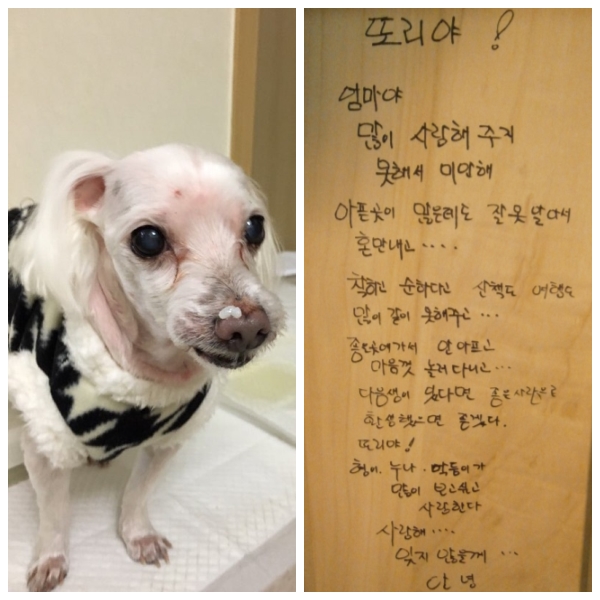 또리야 !
엄마야
많이 사랑해 주지
못해서 미안해
아픈곳이 많은데도 잘못 알아서
혼만내고 ....
착하고 순하다고 산책도 여행도
많이 같이 못해주고 ...
좋은곳에가서 안아프고
마음껏 놀러다니고 ...
다음생이 있다면 좋은사람으로
환생했으면 좋겠다.
또리야!
형아. 누나. 막둥이가
많이 보고싶고
사랑한다
사랑해 ....
잊지 않을께 ...
안녕